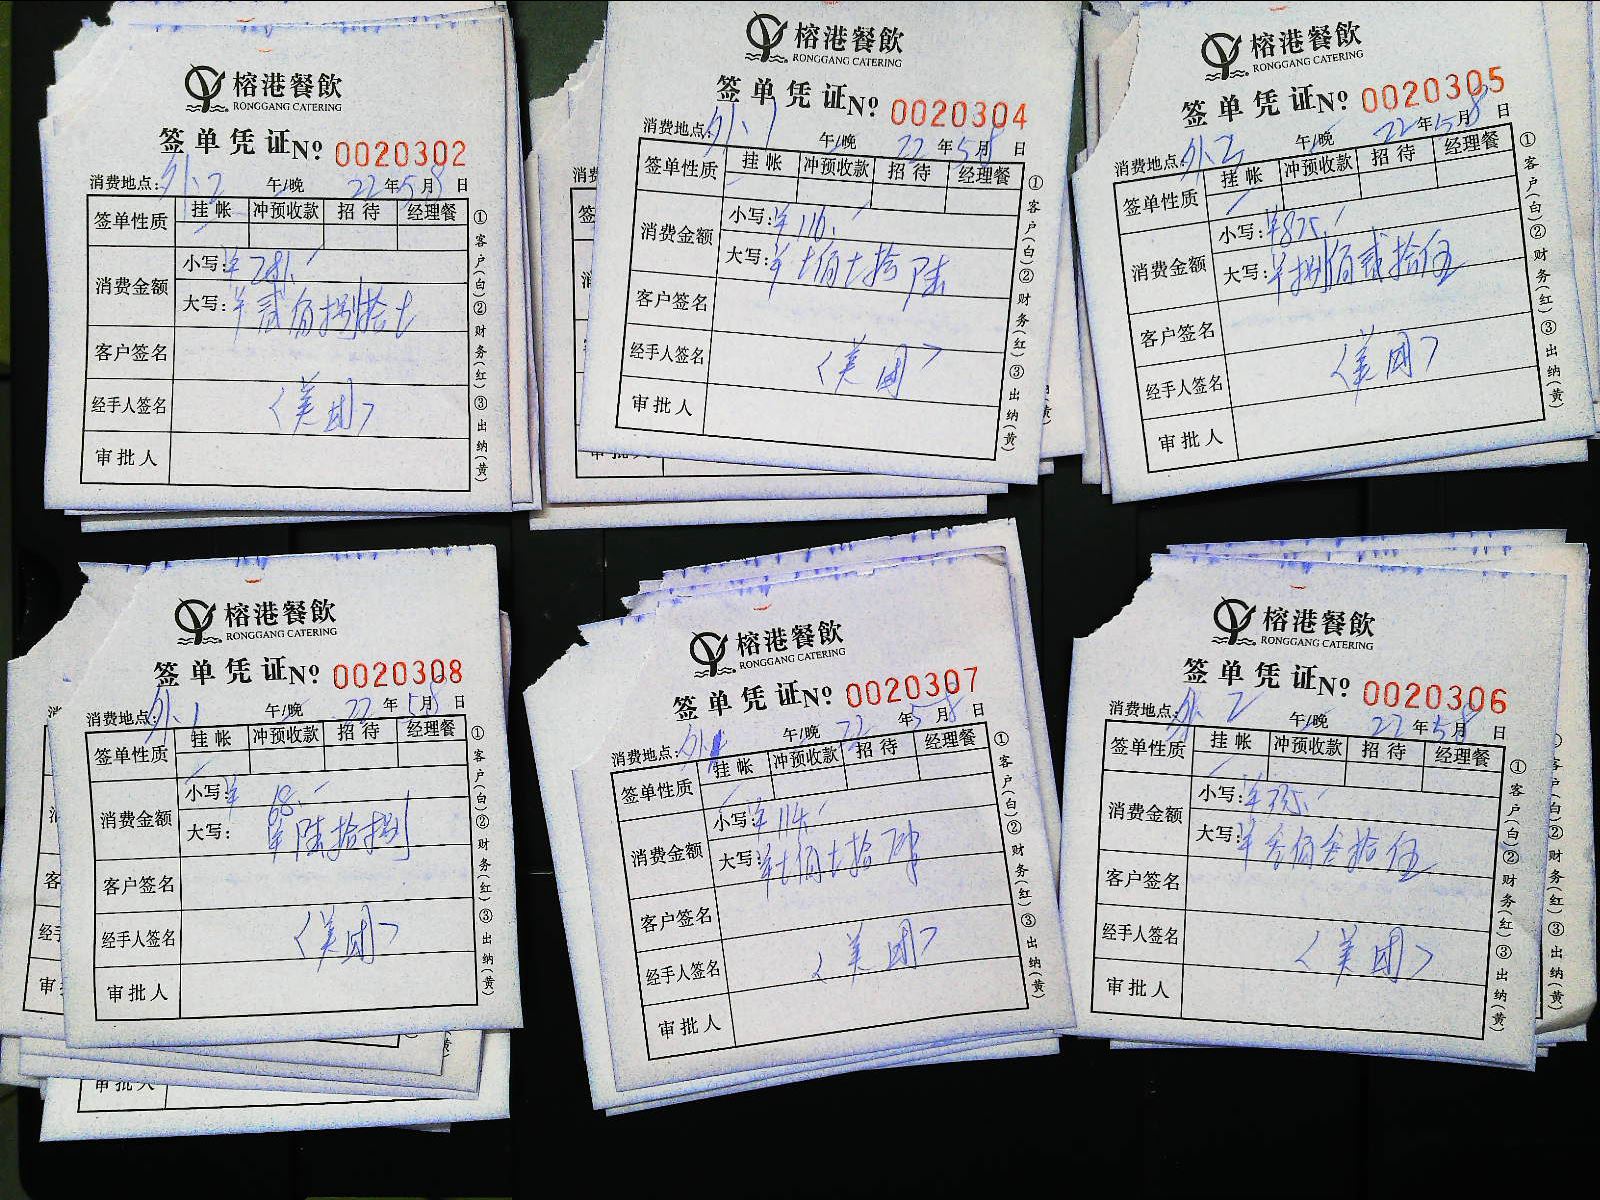 榕港餐飲
RONGGANG CATERING
签单凭证 No 0020302
消费地点: 外2 午/晚 22年5月8日
签单性质 挂帐 冲预收款 招待 经理餐
消费金额 小写:¥287.-
大写:¥贰佰捌拾七
客户签名
经手人签名 〈美团〉
审批人
①客户(白)②财务(红)③出纳(黄)
榕港餐飲
RONGGANG CATERING
签单凭证 No 0020304
消费地点: 外1 午/晚 22年5月8日
签单性质 挂帐 冲预收款 招待 经理餐
消费金额 小写:
大写:¥七佰七拾陆
客户签名
经手人签名 〈美团〉
审批人
①客户(白)②财务(红)③出纳(黄)
榕港餐飲
RONGGANG CATERING
签单凭证 No 0020305
消费地点: 外2 午/晚 22年5月8日
签单性质 挂帐 冲预收款 招待 经理餐
消费金额 小写:¥825.-
大写:¥捌佰贰拾伍
客户签名
经手人签名 〈美团〉
审批人
①客户(白)②财务(红)③出纳(黄)
榕港餐飲
RONGGANG CATERING
签单凭证 No 0020308
消费地点: 外1 午/晚 22年5月8日
签单性质 挂帐 冲预收款 招待 经理餐
消费金额 小写:¥68.-
大写:¥陆拾捌
客户签名
经手人签名 〈美团〉
审批人
①客户(白)②财务(红)③出纳(黄)
审批人
榕港餐飲
RONGGANG CATERING
签单凭证 No 0020307
消费地点: 外 午/晚 22年5月8日
签单性质 挂帐 冲预收款 招待 经理餐
消费金额 小写:
大写:¥七佰七拾肆
客户签名
经手人签名 〈美团〉
审批人
①客户(白)②财务(红)③出纳(黄)
榕港餐飲
RONGGANG CATERING
签单凭证 No 0020306
消费地点: 外2 午/晚 22年5月8日
签单性质 挂帐 冲预收款 招待 经理餐
消费金额 小写:¥335.-
大写:¥叁佰叁拾伍
客户签名
经手人签名 〈美团〉
审批人
①客户(白)②财务(红)③出纳(黄)